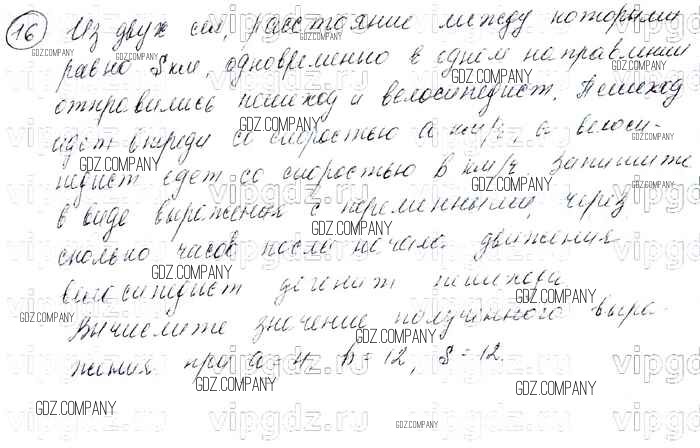 16 Из двух сел, расстояние между которыми
равно S км, одновременно в одном направлении
отправились пешеход и велосипедист. Пешеход
идет впереди со скоростью a км/ч, а велоси-
педист едет со скоростью b км/ч. Запишите
в виде выражения с переменными, через
сколько часов после начала движения
велосипедист догонит пешехода.
Вычислите значение полученного выра-
жения при a = 4, b = 12, S = 12.
GDZ.COMPANY
vipgdz.ru